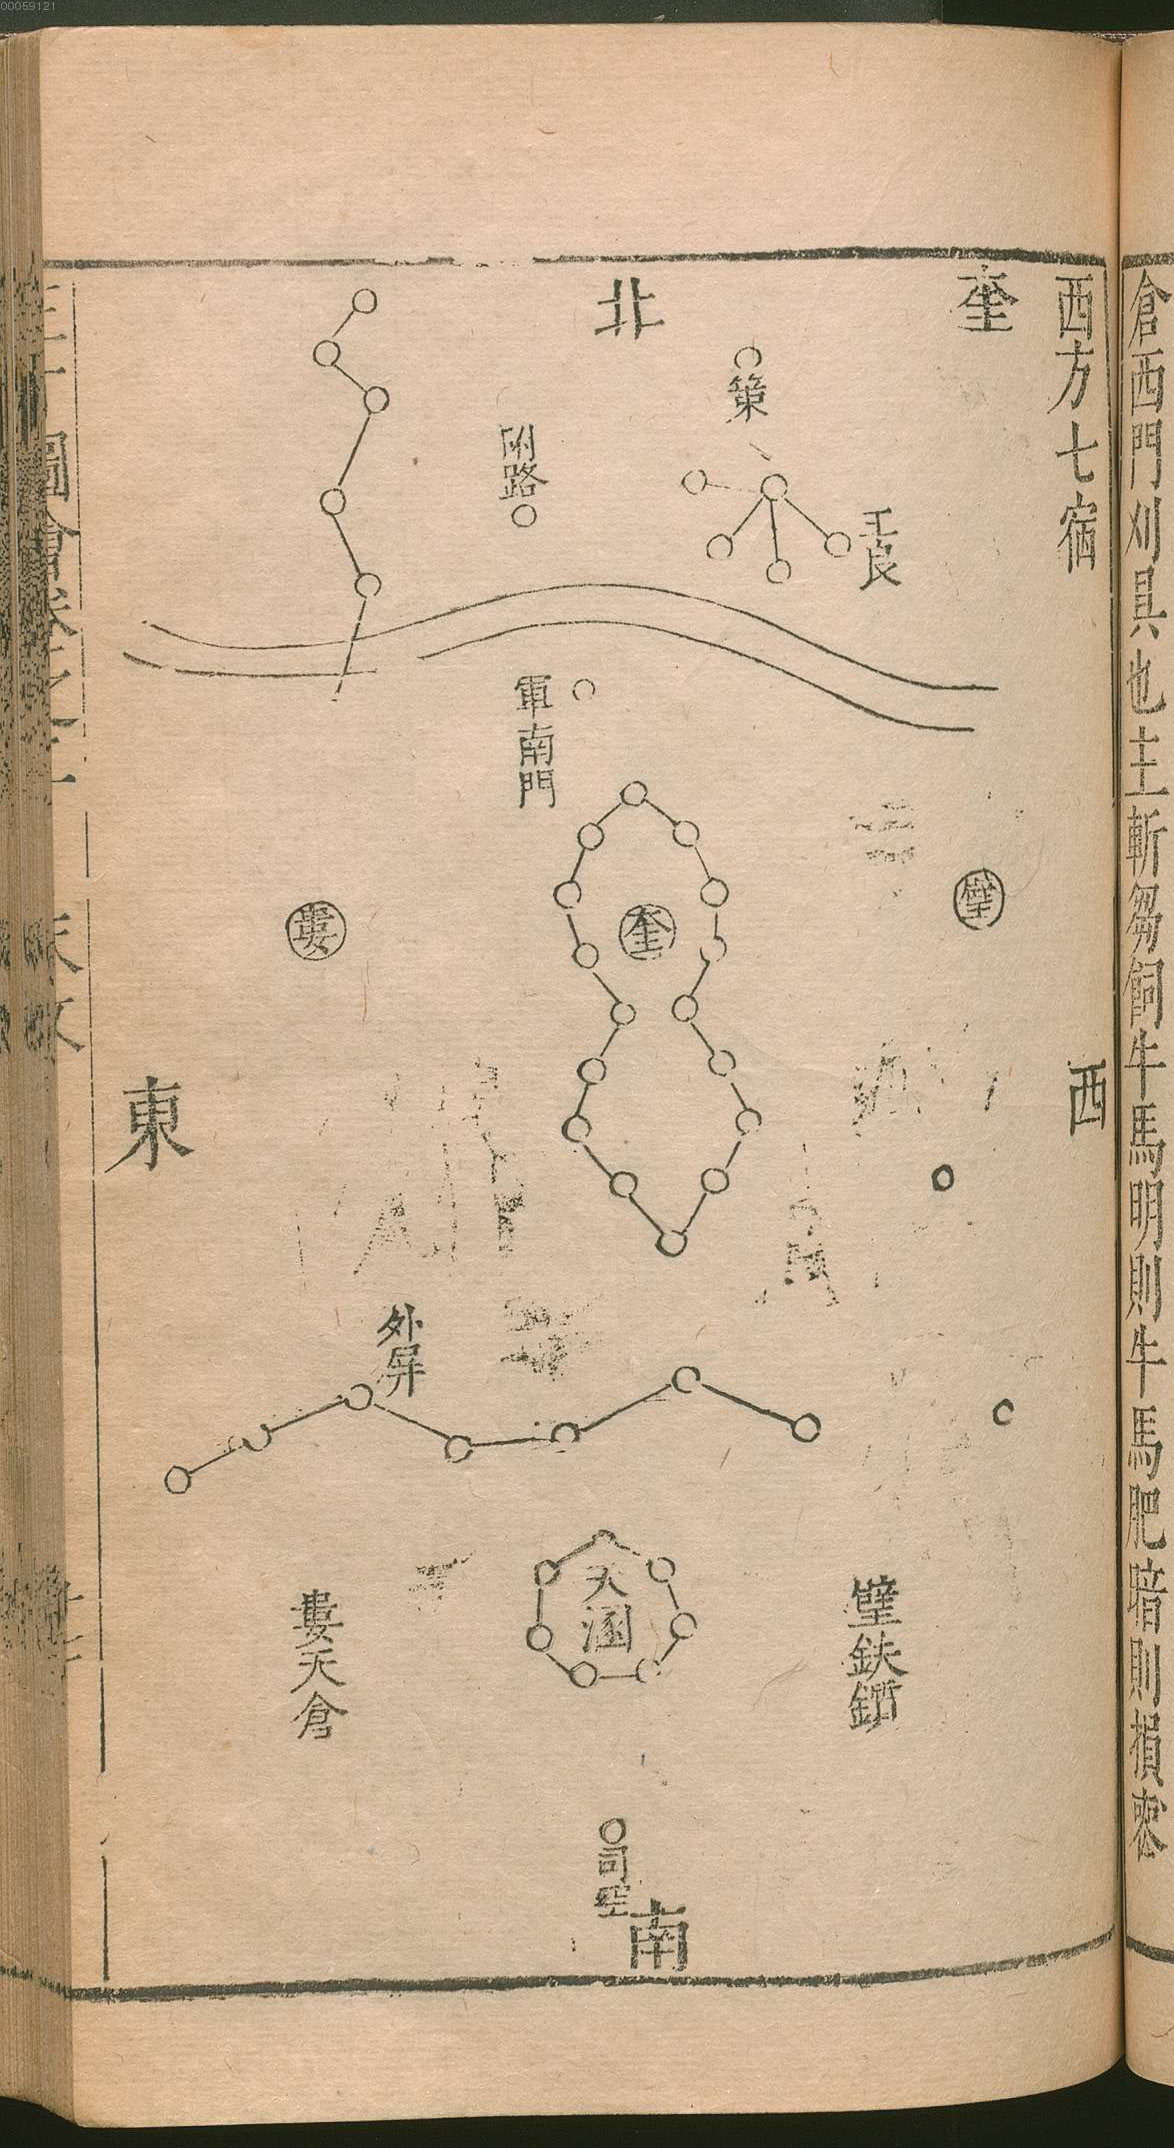 00059121
倉西門刈具也主斬芻飼牛馬明則牛馬肥暗則損
西方七宿
奎
北
策
王良
附路
軍南門
壁
奎
婁
西
東
外屏
天溷
壁鈇鑕
婁天倉
司空
南
圖會卷之